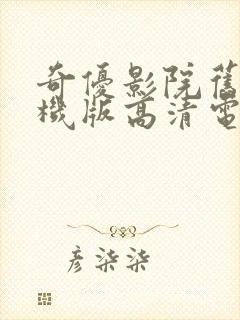 奇優影院舊
機版高清電
彥柒柒